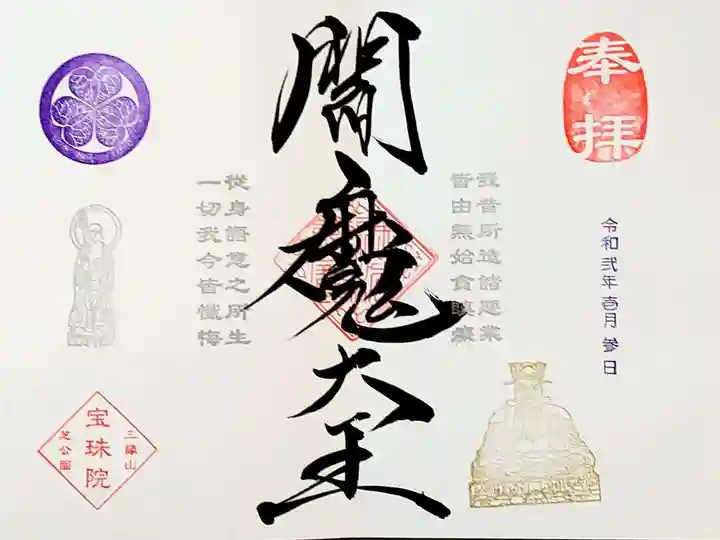 奉拝
令和弐年壱月参日
我昔所造諸悪業
皆由無始貪瞋癡
閻魔大王
從身語意之所生
一切我今皆懺悔
三緑山
宝珠院
芝公園